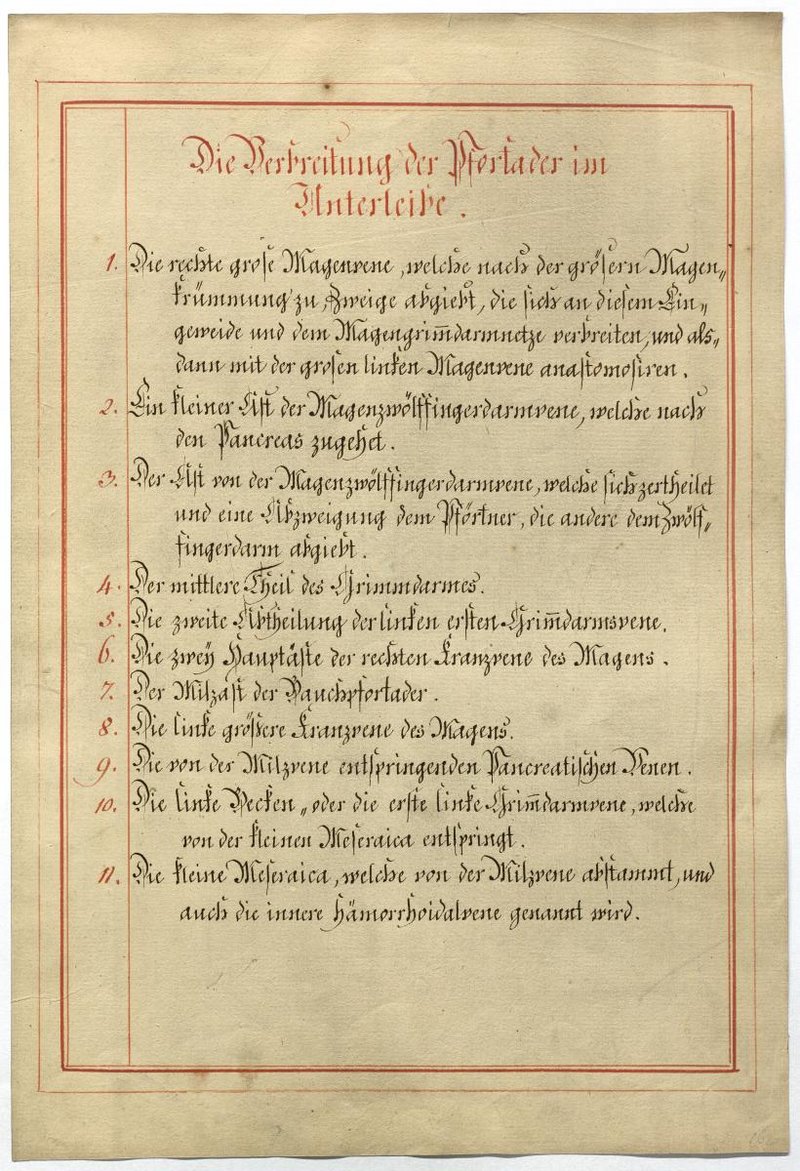 Die Verbreitung der Pfortader im
Unterleibe.
1. Die rechte grose Magenvene, welche nach der grösern Magen„
krümmung zu, Zweige abgiebt, die sich an diesem Ein„
geweide und dem Magengrim̅darmnetze verbreiten, und als„
dann mit der grosen linken Magenvene anastomosiren.
2. Ein kleiner Ast der Magenzwölffingerdarmvene, welche nach
den Pancreas zugehet.
3. Der Ast von der Magenzwölffingerdarmvene, welche sich zertheilet
und eine Abzweigung dem Pförtner, die andere dem Zwölf„
fingerdarm abgiebt.
4. Der mittlere Theil des Grimmdarmes.
5. Die zweite Abtheilung der linken ersten Grim̅darmsvene.
6. Die zwey Hauptäste der rechten Kranzvene des Magens.
7. Der Milzast der Bauchpfortader.
8. Die linke größere Kranzvene des Magens.
9. Die von der Milzvene entspringenden Pancreatischen Venen.
10. Die linke Becken„ oder die erste linke Grim̅darmvene, welche
von der kleinen Meseraica entspringt.
11. Die kleine Meseraica, welche von der Milzvene abstammt, und
auch die innere Hämorrhoidalvene genannt wird.